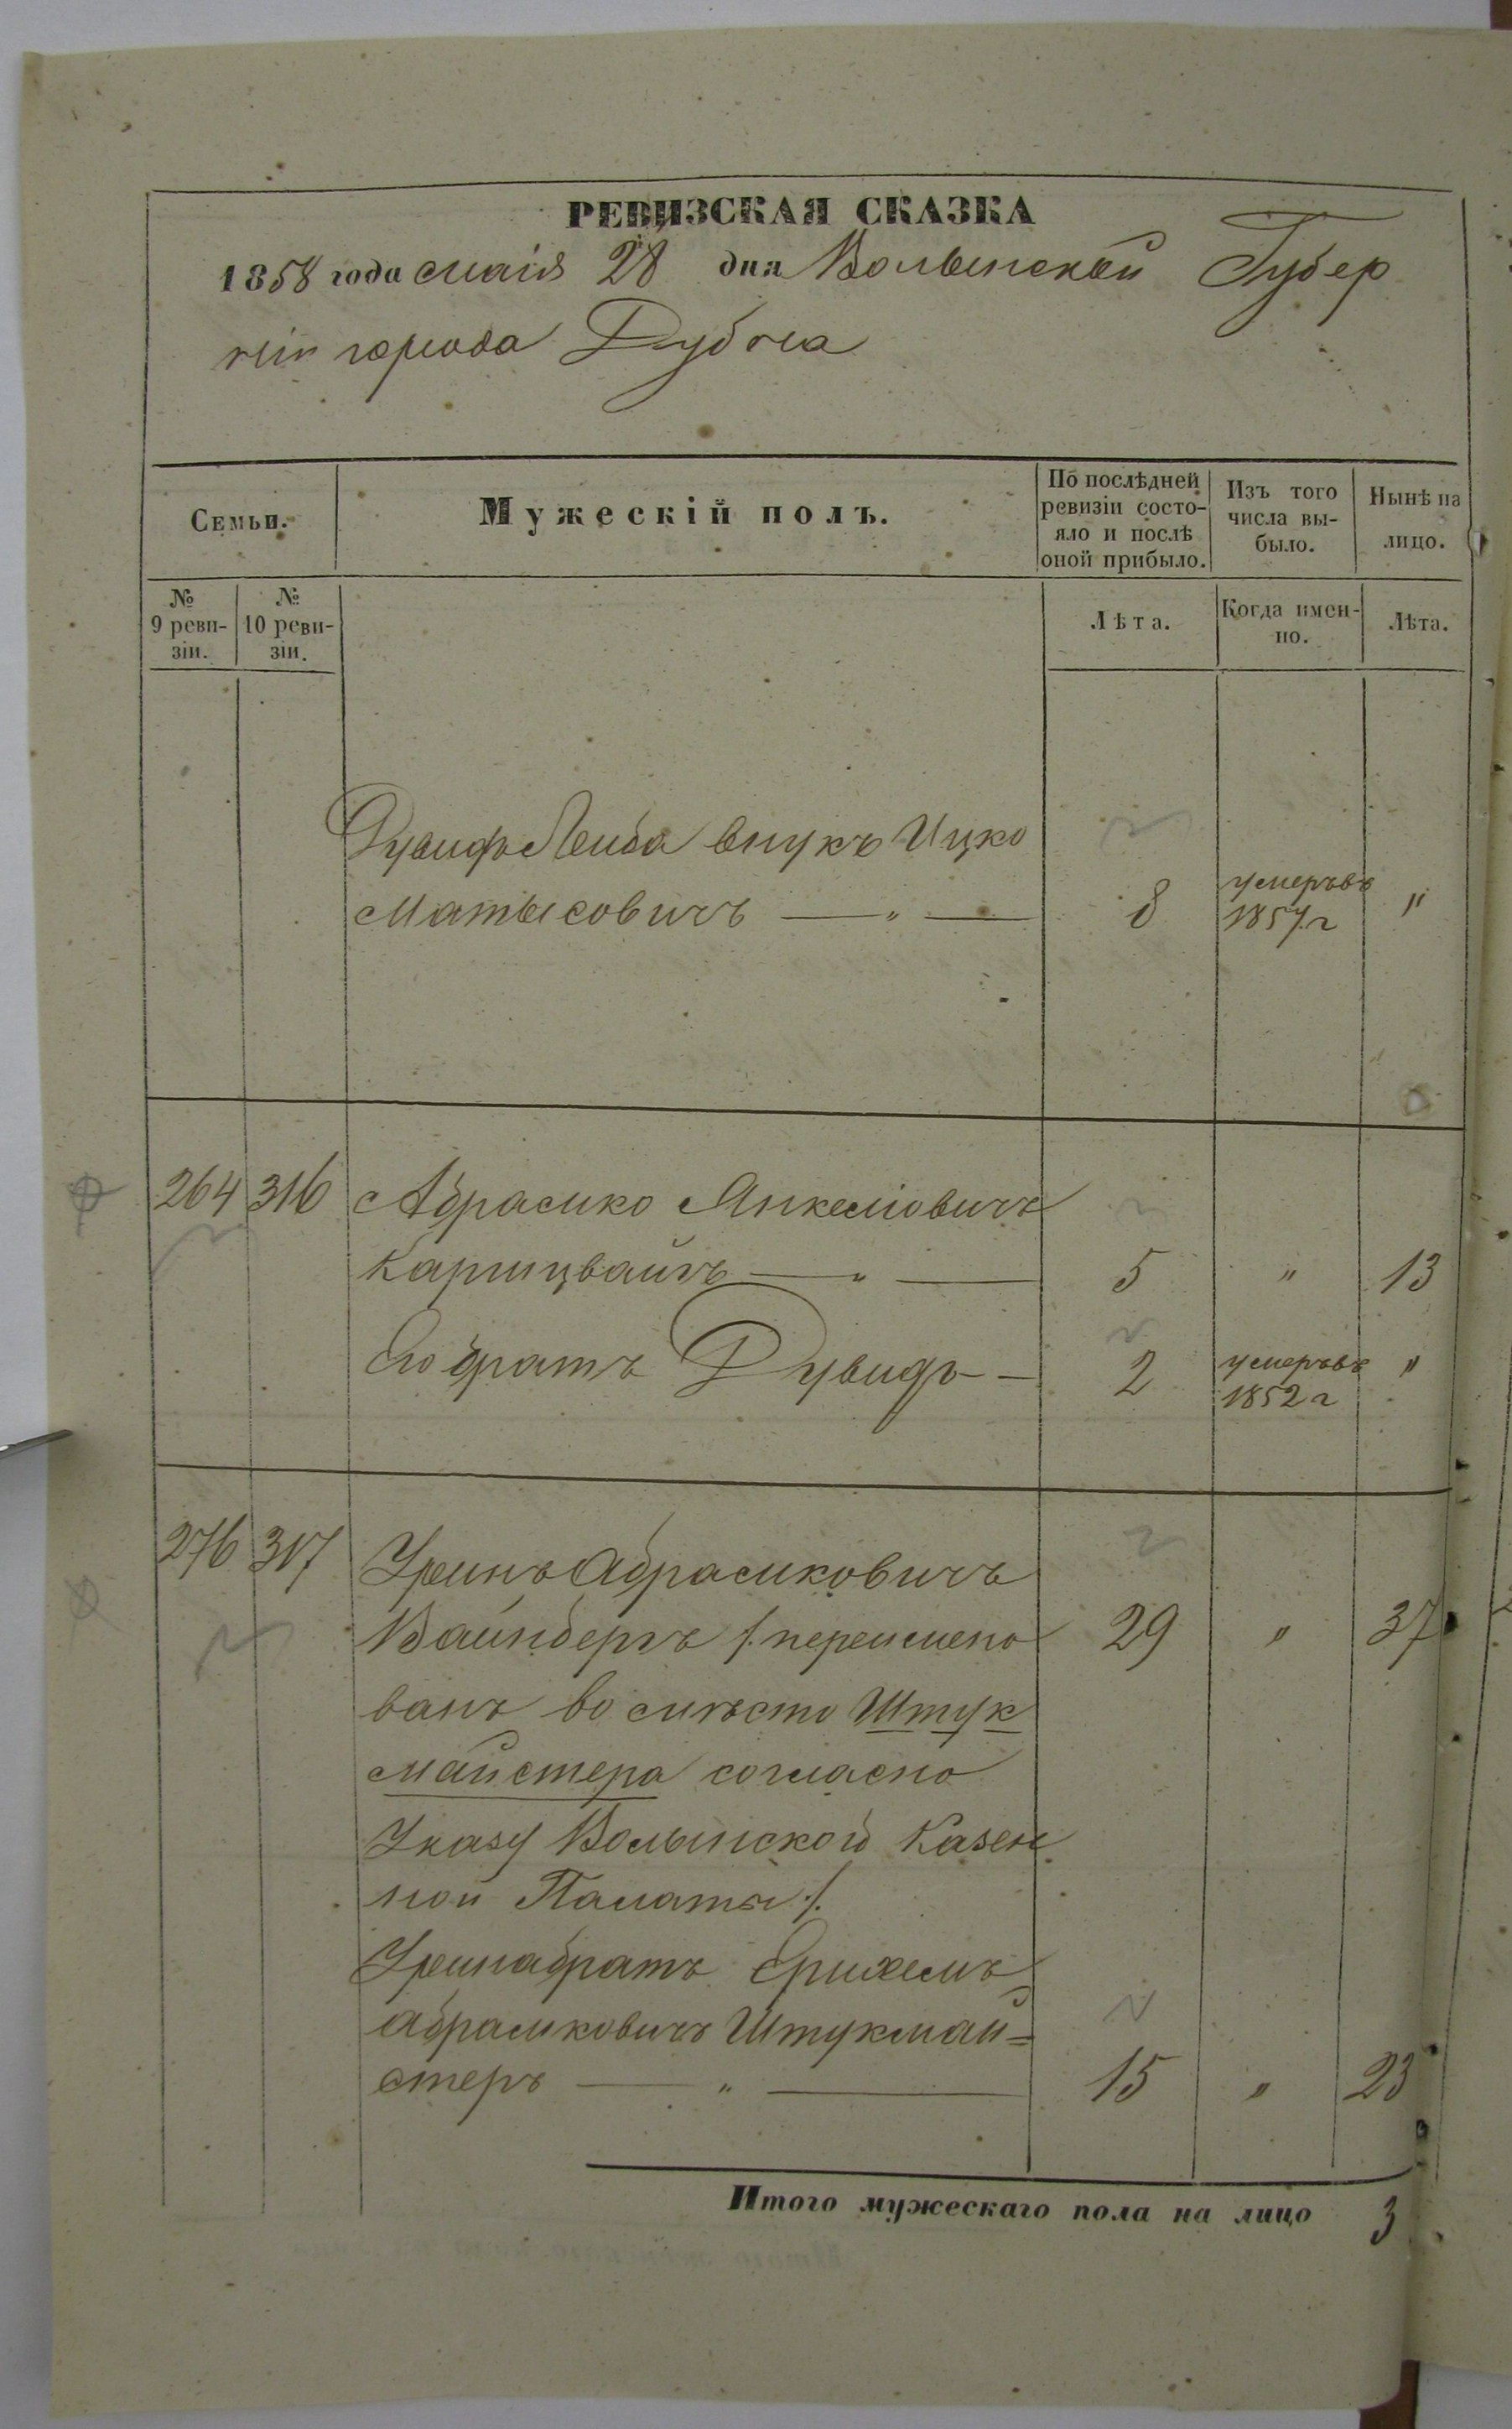 РЕВИЗСКАЯ СКАЗКА
1858 года маія 28 дня Волынской Губер
ніи города Дубна
Семьи.
Мужескій полъ.
По послѣдней ревизіи состо-
яло и послѣ оной прибыло.
Изъ того числа вы-
было.
Нынѣ на лицо.
№ 9 реви-
зіи.
№ 10 реви-
зіи.
Лѣта.
Когда имен-
но.
Лѣта.
Лейба внукъ Ицко
умеръ въ
Матысовичъ — " — 8 1857 г "
264 316 Абрамко Янкеліовичъ
— " — 5 " 13
Его братъ Дувидъ — 2 умеръ въ "
1852 г
276 317 Абрамковичъ
Вайнбергъ /: переимено 29 " 37
ванъ во мѣсто Штук
майстера согласно
Указу Волынской Казен
ной Палаты :/
братъ
Абрамковичъ Штукмай=
стеръ — " — 15 " 23
Итого мужескаго пола на лицо 3